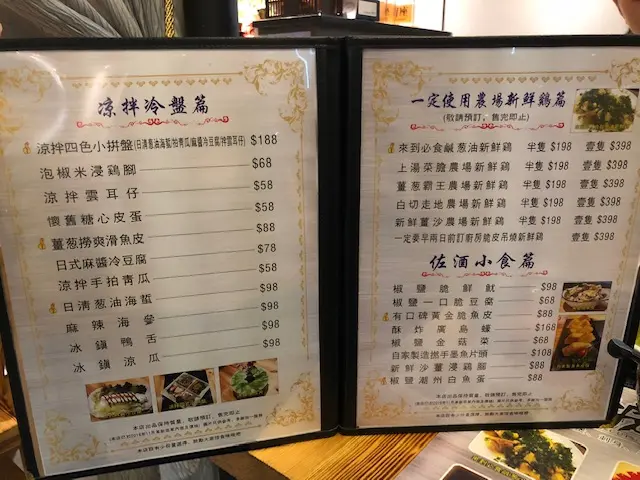 涼拌冷盤篇
涼拌四色小拼盤(日清葱油海蜇/拍青瓜/麻醬冷豆腐/拌雲耳仔) $188
泡椒米浸鷄腳 $68
涼拌雲耳仔 $58
懷舊糖心皮蛋 $58
薑葱撈爽滑魚皮 $88
日式麻醬冷豆腐 $78
涼拌手拍青瓜 $58
日清葱油海蜇 $98
麻辣海參 $98
冰鎮鴨舌 $98
冰鎮涼瓜 $98
本店出品保持質量，敬請預訂，售完即止
本店設有小份量選擇，無勳大家提復隨檢吧
一定使用農場新鮮鷄篇
(敬請預訂，售完即止)
來到必食鹹葱油新鮮鷄 半隻 $198 壹隻 $398
上湯菜膽農場新鮮鷄 半隻 $198 壹隻 $398
薑葱霸王農場新鮮鷄 半隻 $198 壹隻 $398
白切走地農場新鮮鷄 半隻 $198 壹隻 $398
新鮮薑沙農場新鮮鷄 半隻 $198 壹隻 $398
一定要早兩日前訂廚房脆皮吊燒新鮮鷄 壹隻 $398
佐酒小食篇
椒鹽脆鮮魷 $98
椒鹽一口脆豆腐 $68
有口碑黃金脆魚皮 $88
酥炸廣島蠔 $168
椒鹽金菇菜 $68
自家製造撚手墨魚片頭 $108
新鮮沙薑浸鷄腳 $88
椒鹽潮州白魚蛋 $88
本店出品保持質量，敬請預訂，售完即止